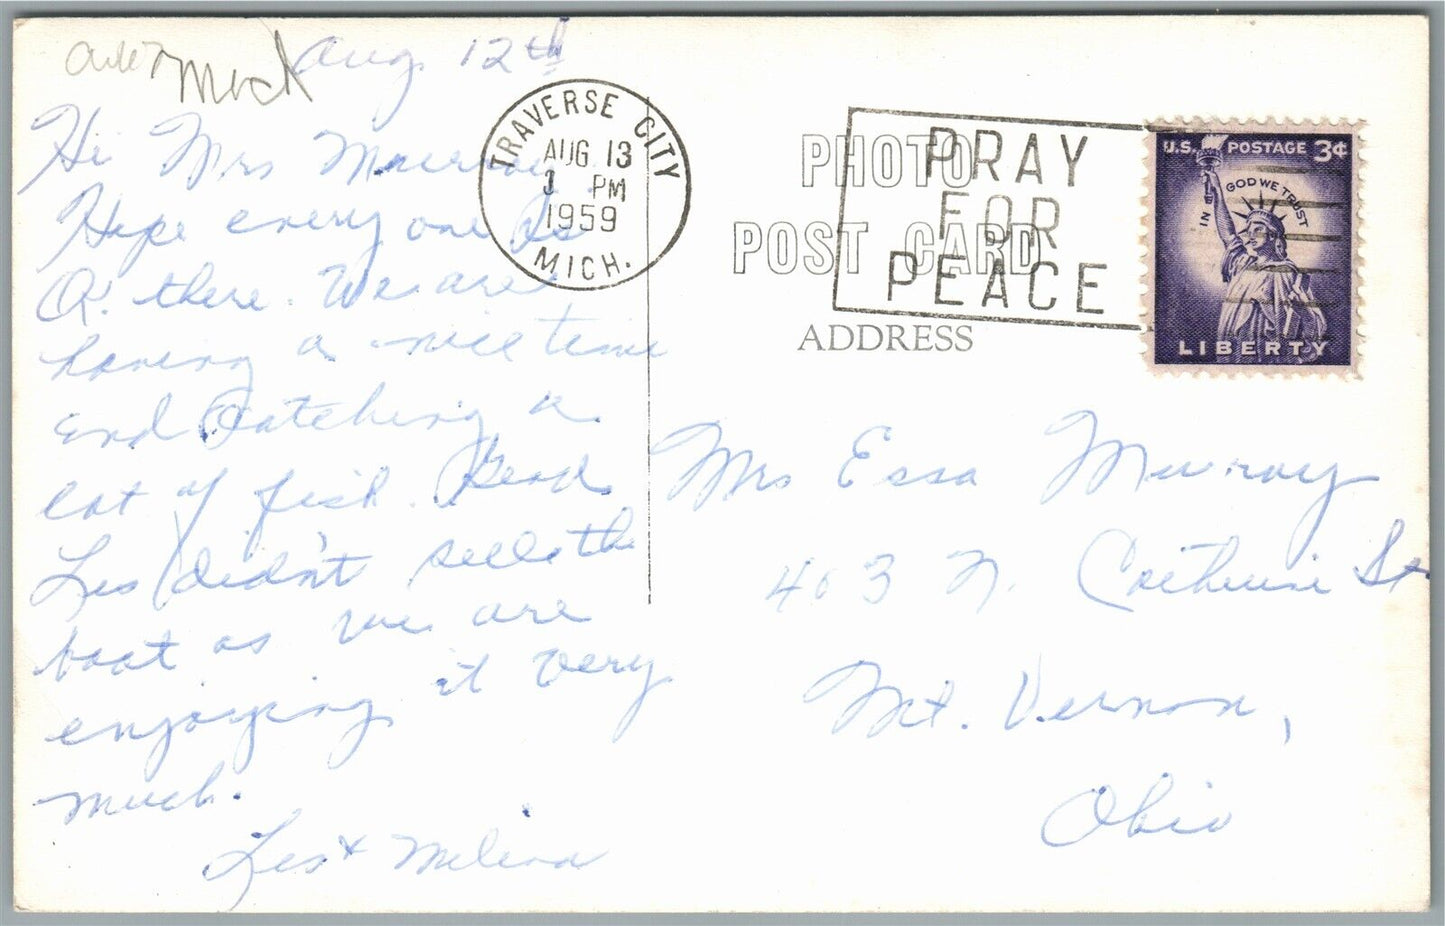 Mich Aug 12th
Hi Mrs Murray.
Hope every one is
O.K. there. We are
having a nice time
and catching a
lot of fish. Glad
Les didn't sell the
boat as we are
enjoying it very
much.
Les & Melina
TRAVERSE CITY
AUG 13
1 PM
1959
MICH.
PHOTO
POST CARD
ADDRESS
PRAY
FOR
PEACE
U.S. POSTAGE 3¢
IN GOD WE TRUST
LIBERTY
Mrs Essa Murray
403 N. Catherine St
Mt. Vernon,
Ohio